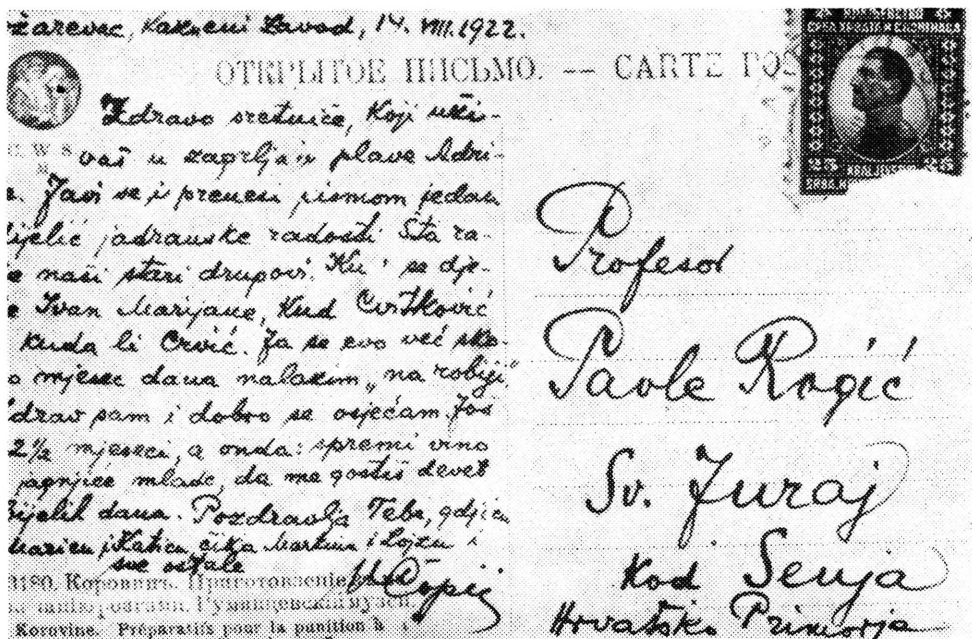 žarevac, Kazneni Zavod, 14. VIII. 1922.
ОТКРЫТОЕ ПИСЬМО. — CARTE POS
Zdravo sretniče, Koji uži-
vaš u zagrljaju plave Adri-
e. Javi se i prenesi pismom jedan
dijelić jadranske radosti Šta ra-
e naši stari drugovi. Ku se dje-
e Ivan Marijane, Kud Cvitković
kuda li Crvić. Ja se evo već sko-
o mjesec dana nalazim „na robiji"
Zdrav sam i dobro se osjećam. Još
2½ mjeseci, a onda: spremi vino
jagnjiće mlado, da me gostiš devet
bijelih dana. Pozdravlja Tebe, gdjicu
Maricu i Katicu, čika Martina i Lojzu i
sve ostale
Čopić
3180. Коровинъ. Приготовление
Румянцевский музей
Korovine. Préparatifs pour la punition
25 25
Profesor
Pavle Rogić
Sv. Juraj
Kod Senja
Hrvatsko Primorje